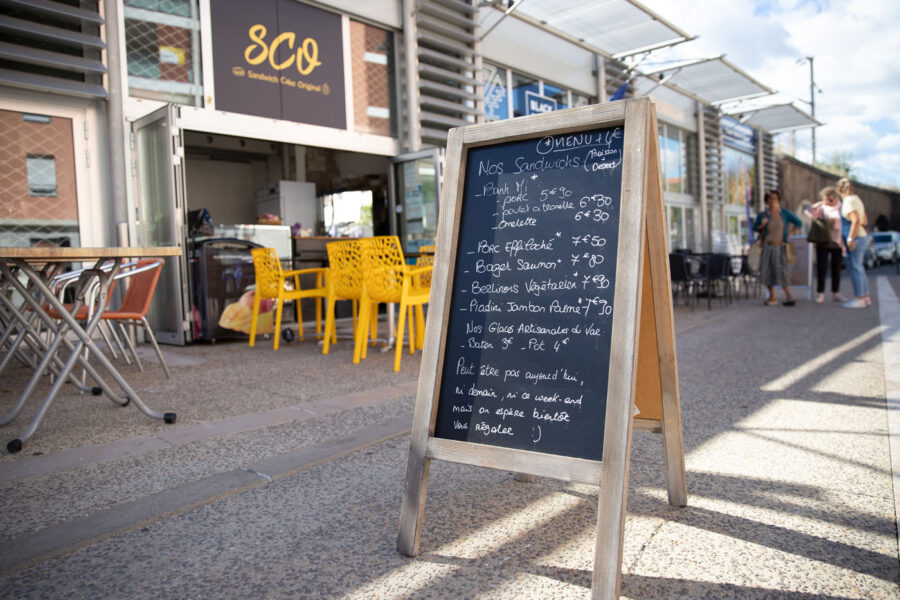 SCO
Sandwich Coke Original
BLACK
* MENU + 4€
(Boisson
Dessert)
Nos Sandwichs
- Banh Mi *
- porc 5€90
- poulet citronelle 6€30
- omelette 6€30
- Porc Effiloché * 7€50
- Bagel Saumon * 7€80
- Beerlinois Végétarien * 7€90
- Piadini Jambon Parme * 7€90
Nos Glaces Artisanales du Var
- Baton 3€ - Pot 4€
Peut être pas aujourd'hui,
ni demain, ni ce week-end
mais on espère bientôt
vous régaler :)